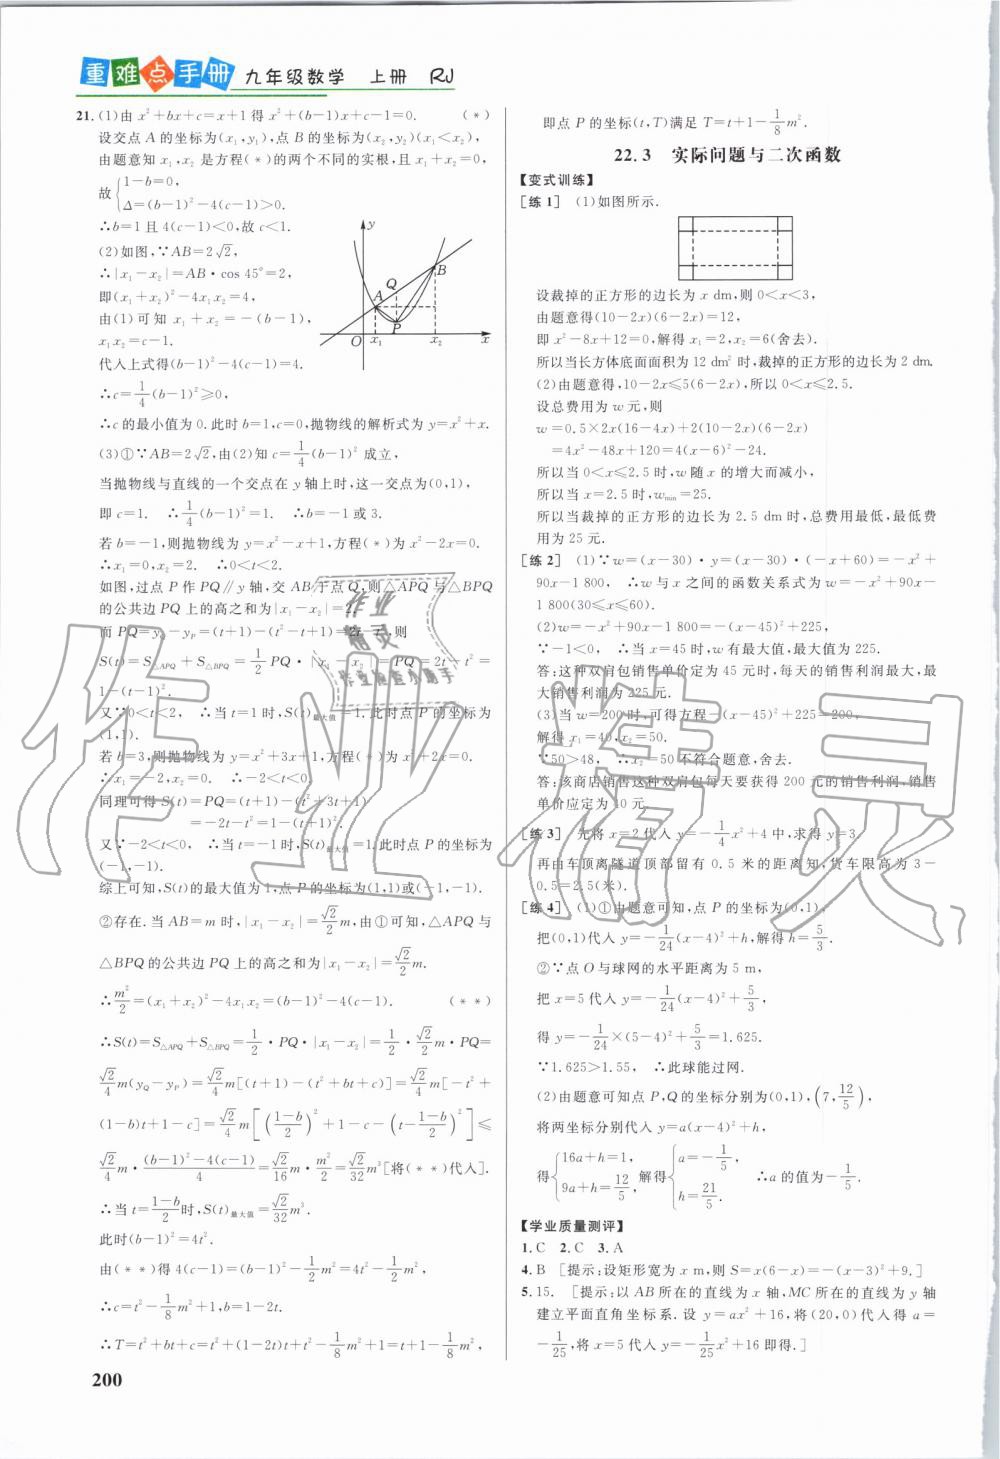 重难点手册 九年级数学 上册 RJ
21. (1)由 x²+bx+c=x+1 得 x²+(b-1)x+c-1=0. (*)
设交点 A 的坐标为(x₁,y₁),点 B 的坐标为(x₂,y₂)(x₁<x₂),
由题意知 x₁,x₂ 是方程(*)的两个不同的实根,且 x₁+x₂=0,
故{1-b=0,
Δ=(b-1)²-4(c-1)>0.
∴b=1 且 4(c-1)<0,故 c<1.
(2)如图,∵AB=2√2,
∴|x₁-x₂|=AB·cos 45°=2,
即(x₁+x₂)²-4x₁x₂=4,
由(1)可知 x₁+x₂=-(b-1),
x₁x₂=c-1.
代入上式得(b-1)²-4(c-1)=4.
y
B
Q
A
P
O x₁ x₂ x
∴c=1/4(b-1)²≥0,
∴c 的最小值为 0. 此时 b=1,c=0,抛物线的解析式为 y=x²+x.
(3)①∵AB=2√2,由(2)知 c=1/4(b-1)² 成立,
当抛物线与直线的一个交点在 y 轴上时,这一交点为(0,1),
即 c=1. ∴1/4(b-1)²=1. ∴b=-1 或 3.
若 b=-1,则抛物线为 y=x²-x+1,方程(*)为 x²-2x=0.
∴x₁=0,x₂=2. ∴0<t<2.
如图,过点 P 作 PQ∥y 轴,交 AB 于点 Q,则△APQ 与△BPQ
的公共边 PQ 上的高之和为|x₁-x₂|=2,
而 PQ=y_Q-y_P=(t+1)-(t²-t+1)=2t-t²,则
S(t)=S△APQ+S△BPQ=1/2PQ·|x₁-x₂|=PQ=2t-t²=
1-(t-1)².
又∵0<t<2, ∴当 t=1 时,S(t)最大值=1,此时点 P 的坐标为
(1,1).
若 b=3,则抛物线为 y=x²+3x+1,方程(*)为 x²+2x=0.
∴x₁=-2,x₂=0. ∴-2<t<0.
同理可得 S(t)=PQ=(t+1)-(t²+3t+1)
=-2t-t²=1-(t+1)².
又∵-2<t<0, ∴当 t=-1 时,S(t)最大值=1.此时点 P 的坐标为
(-1,-1).
综上可知,S(t)的最大值为 1,点 P 的坐标为(1,1)或(-1,-1).
②存在.当 AB=m 时,|x₁-x₂|=√2/2m,由①可知,△APQ 与
△BPQ 的公共边 PQ 上的高之和为|x₁-x₂|=√2/2m.
∴m²/2=(x₁+x₂)²-4x₁x₂=(b-1)²-4(c-1). (**)
∴S(t)=S△APQ+S△BPQ=1/2·PQ·|x₁-x₂|=1/2·√2/2m·PQ=
√2/4m(y_Q-y_P)=√2/4m[(t+1)-(t²+bt+c)]=√2/4m[-t²+
(1-b)t+1-c]=√2/4m[((1-b)/2)²+1-c-(t-(1-b)/2)²]≤
√2/4m·((b-1)²-4(c-1))/4=√2/16m·m²/2=√2/32m³[将(**)代入].
∴当 t=(1-b)/2时,S(t)最大值=√2/32m³.
此时(b-1)²=4t².
由(**)得 4(c-1)=(b-1)²-1/2m²=4t²-1/2m²,
∴c=t²-1/8m²+1,b=1-2t.
∴T=t²+bt+c=t²+(1-2t)t+t²-1/8m²+1=t+1-1/8m²,
200
即点 P 的坐标(t,T)满足 T=t+1-1/8m².
22.3 实际问题与二次函数
【变式训练】
[练 1] (1)如图所示.
设裁掉的正方形的边长为 x dm,则 0<x<3,
由题意得(10-2x)(6-2x)=12,
即 x²-8x+12=0,解得 x₁=2,x₂=6(舍去).
所以当长方体底面面积为 12 dm² 时,裁掉的正方形的边长为 2 dm.
(2)由题意得,10-2x≤5(6-2x),所以 0<x≤2.5.
设总费用为 w 元,则
w=0.5×2x(16-4x)+2(10-2x)(6-2x)
=4x²-48x+120=4(x-6)²-24.
所以当 0<x≤2.5 时,w 随 x 的增大而减小,
所以当 x=2.5 时,w_min=25.
所以当裁掉的正方形的边长为 2.5 dm 时,总费用最低,最低费
用为 25 元.
[练 2] (1)∵w=(x-30)·y=(x-30)·(-x+60)=-x²+
90x-1 800, ∴w 与 x 之间的函数关系式为 w=-x²+90x-
1 800(30≤x≤60).
(2)w=-x²+90x-1 800=-(x-45)²+225,
∵-1<0, ∴当 x=45 时,w 有最大值,最大值为 225.
答:这种双肩包销售单价定为 45 元时,每天的销售利润最大,最
大销售利润为 225 元.
(3)当 w=200 时,可得方程-(x-45)²+225=200,
解得 x₁=40,x₂=50.
∵50>48, ∴x₂=50 不符合题意,舍去.
答:该商店销售这种双肩包每天要获得 200 元的销售利润,销售
单价应定为 40 元.
[练 3] 先将 x=2 代入 y=-1/4x²+4 中,求得 y=3,
再由车顶离隧道顶部留有 0.5 米的距离知,货车限高为 3-
0.5=2.5(米).
[练 4] (1)①由题意可知,点 P 的坐标为(0,1),
把(0,1)代入 y=-1/24(x-4)²+h,解得 h=5/3.
②∵点 O 与球网的水平距离为 5 m,
把 x=5 代入 y=-1/24(x-4)²+5/3,
得 y=-1/24×(5-4)²+5/3=1.625.
∵1.625>1.55, ∴此球能过网.
(2)由题意可知点 P,Q 的坐标分别为(0,1),(7,12/5),
将两坐标分别代入 y=a(x-4)²+h,
得{16a+h=1, 9a+h=12/5, 解得{a=-1/5, h=21/5. ∴a 的值为-1/5.
【学业质量测评】
1. C 2. C 3. A
4. B [提示:设矩形宽为 x m,则 S=x(6-x)=-(x-3)²+9.]
5. 15. [提示:以 AB 所在的直线为 x 轴,MC 所在的直线为 y 轴
建立平面直角坐标系.设 y=ax²+16,将(20,0)代入得 a=
-1/25,将 x=5 代入 y=-1/25x²+16 即得.]
作业精灵
作业
精灵
作业检查小助手